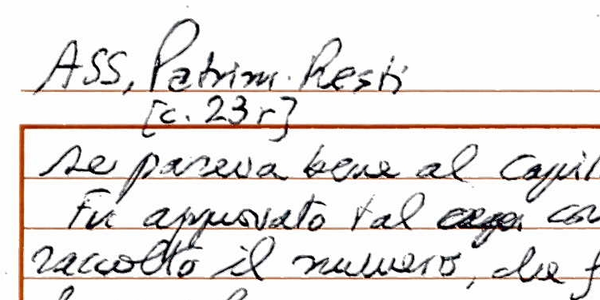 ASS, Patrim. Resti
[c. 23r]
se pareva bene al Capit
Fu approvato tal con
raccolto il numero, che f